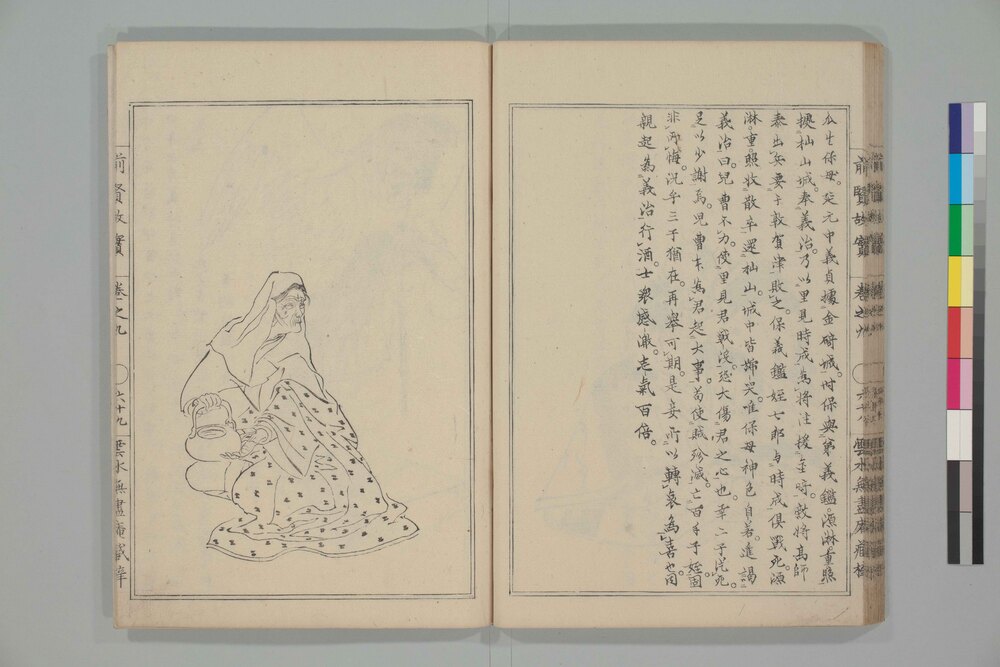 瓜生保母。延元中義貞據金﨑城。時保與弟義鑑。源琳重照
據杣山城。奉義治。乃以里見時成為將往援金﨑。敵將高師
泰出兵要于敦賀津敗之。保義鑑姪七郎与時成俱戰死。源
琳。重照收散卒還杣山。城中皆嫦哭。唯保母神色自若。進謁
義治曰。兒曹不力。使里見君戰没。恐大傷君之心也。幸二子從死。
足以少謝焉。兒曹本為君起大事。苟使賊殄滅。亡百千子姪固
非所悔。況乎三子猶在。再舉可期。是妾所以轉哀為喜也。因
親起為義治行酒。士衆感激。志氣百倍。
前賢故實 卷之九 雲水無盡庵藏梓
前賢故實 卷之九 六十九 雲水無盡庵藏梓